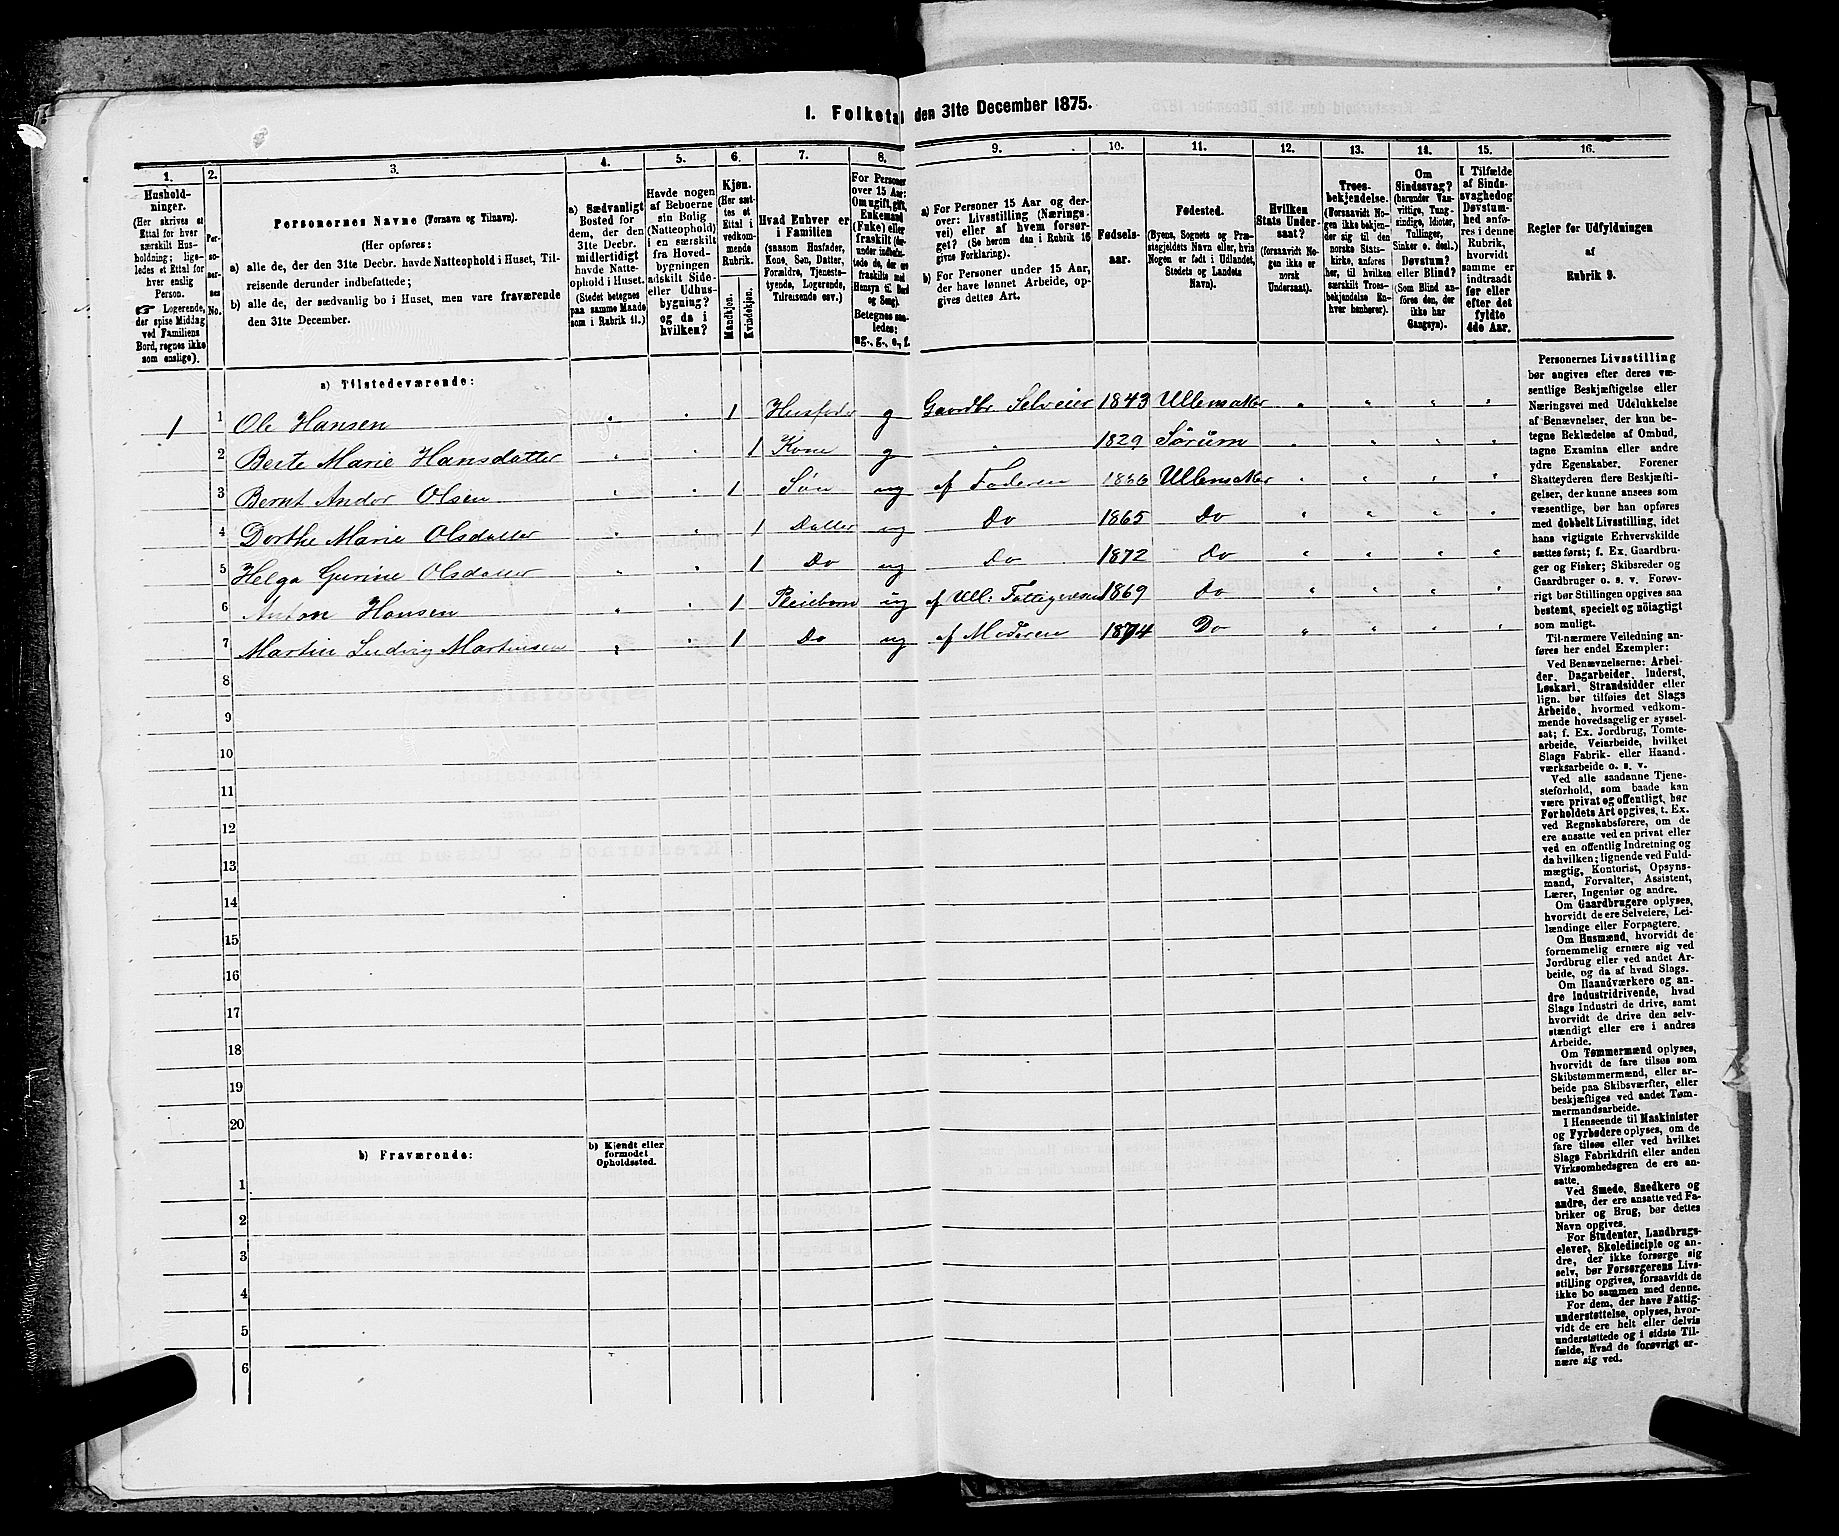 1. Folketal den 31te December 1875.
1. 2. 3. 4. 5. 6. 7. 8. 9. 10. 11. 12. 13. 14. 15. 16.
Hushold-
ninger.
(Her skrives et
Ettal for hver
særskilt Hus-
holdning; lige-
ledes et Ettal for
hver enslig
Person.
☞ Logerende,
der spise Middag
ved Familiens
Bord, regnes ikke
som enslige).
Per-
soner-
nes
No.
Personernes Navne (Fornavn og Tilnavn).
(Her opføres:
a) alle de, der den 31te Decbr. havde Natteophold i Huset, Til-
reisende derunder indbefattede;
b) alle de, der sædvanlig bo i Huset, men vare fraværende
den 31te December.
a) Sædvanligt
Bosted for
dem, der den
31te Decbr.
midlertidigt
havde Natte-
ophold i Huset.
(Stedet betegnes
paa samme Maade
som i Rubrik 11.)
Havde nogen
af Beboerne
sin Bolig
(Natteophold)
i en særskilt
fra Hoved-
bygningen
adskilt Side-
eller Udhus-
bygning?
og da i
hvilken?
Kjøn.
(Her sæt-
tes et
Ettal i
vedkom-
mende
Rubrik.
Mandkjøn.
Kvindekjøn.
Hvad Enhver er
i Familien
(saasom Husfader,
Kone, Søn, Datter,
Forældre, Tjeneste-
tyende, Logerende,
Tilreisende osv.)
For Personer
over 15 Aar:
Om ugift, gift,
Enkemand
(Enke) eller
fraskilt (der-
under indbefat-
tede de, der ere
fraskilte med
Hensyn til Bord
og Seng).
Betegnes saa-
ledes:
ug., g., e., f.
a) For Personer 15 Aar og der-
over: Livsstilling (Nærings-
vei) eller af hvem forsør-
get? (Se herom den i Rubrik 16
givne Forklaring).
b) For Personer under 15 Aar,
der have lønnet Arbeide, op-
gives dettes Art.
Fødsels-
aar.
Fødested.
(Byens, Sognets og Præ-
stegjeldets Navn eller, hvis
Nogen er født i Udlandet,
Stedets og Landets
Navn).
Hvilken
Stats Under-
saat?
(forsaavidt No-
gen ikke er
norsk
Undersaat).
Troes-
bekjendelse.
(Forsaavidt No-
gen ikke bekjen-
der sig til den
norske Stats-
kirke, anføres
her, til hvilken
særskilt Troes-
bekjendelse En-
hver henhører).
Om
Sindssvag?
(herunder Van-
vittige, Tung-
sindige, Idioter,
Tullinger,
Sinker o. desl.)
Døvstum?
eller Blind?
(Som Blind an-
føres den, der
ikke har
Gangsyn).
I Tilfælde
af Sinds-
svaghed og
Døvstum-
hed anfø-
res i denne
Rubrik,
hvorvidt
samme er
indtraadt
før eller
efter det
fyldte
4de Aar.
Regler for Udfyldningen
af
Rubrik 9.
a) Tilstedeværende:
1 1 Ole Hansen " " 1 Husfader g Gaardbr. Selveier 1843 Ullensaker " " " "
2 Berte Marie Hansdatter " " 1 Kone g " 1829 Sørum " " " "
3 Bernt Andor Olsen " " 1 Søn ug af Faderen Ullensaker " " " "
4 Dorthe Marie Olsdatter " " 1 Datter ug Do 1865 Do " " " "
5 Helga Gurine Olsdatter " " 1 Do ug Do 1872 Do " " " "
6 Anton Hansen " " 1 Pleiebarn ug af Ull: Fattigvæsen 1869 Do " " " "
7 Martin Ludvig Martinsen " " 1 Do ug af Moderen 1874 Do " " " "
8
9
10
11
12
13
14
15
16
17
18
19
20
b) Fraværende:
b) Kjendt eller
formodet
Opholdssted.
1
2
3
4
5
6
Personernes Livsstilling
bør angives efter deres væ-
sentlige Beskjæftigelse eller
Næringsvei med Udelukkelse
af Benævnelser, der kun be-
tegne Beklædelse af Ombud,
tagne Examina eller andre
ydre Egenskaber. Forener
Skatteyderen flere Beskjæfti-
gelser, der kunne ansees som
væsentlige, bør han opføres
med dobbelt Livsstilling, idet
hans vigtigste Erhvervskilde
sættes først; f. Ex. Gaardbru-
ger og Fisker; Skibsreder og
Gaardbruger o. s. v. Forøv-
rigt bør Stillingen opgives saa
bestemt, specielt og nöiagtigt
som muligt.
Til nærmere Veiledning an-
føres her endel Exempler:
Ved Benævnelserne: Arbei-
der, Dagarbeider, Inderst,
Løskarl, Strandsidder eller
lign. bør tilføies det Slags
Arbeide, hvormed vedkom-
mende hovedsagelig er syssel-
sat; f. Ex. Jordbrug, Tomte-
arbeide, Veiarbeide, hvilket
Slags Fabrik- eller Haand-
værksarbeide o. s. v.
Ved alle saadanne Tjene-
steforhold, som baade kan
være privat og offentligt, bør
Forholdets Art opgives, t. Ex.
ved Regnskabsførere, om de
ere ansatte ved en privat eller
ved en offentlig Indretning og
da hvilken; lignende ved Fuld-
mægtig, Kontorist, Opsyns-
mand, Forvalter, Assistent,
Lærer, Ingeniør og andre.
Om Gaardbrugere oplyses,
hvorvidt de ere Selveiere, Lei-
lændinge eller Forpagtere.
Om Husmænd, hvorvidt de
fornemmelig ernære sig ved
Jordbrug eller ved andet Ar-
beide, og da af hvad Slags.
Om Haandværkere og an-
dre Industridrivende, hvad
Slags Industri de drive, samt
hvorvidt de drive den selv-
stændigt eller ere i andres
Arbeide.
Om Tømmermænd oplyses,
hvorvidt de fare tilsøs som
Skibstømmermænd, eller ar-
beide paa Skibsværfter, eller
beskjæftiges ved andet Tøm-
mermandsarbeide.
I Henseende til Maskinister
og Fyrbødere oplyses, om de
fare tilsøs eller ved hvilket
Slags Fabrikdrift eller anden
Virksomhedsgren de ere an-
satte.
Ved Smede, Snedkere og
andre, der ere ansatte ved Fa-
briker og Brug, bør dettes
Navn opgives.
For Studenter, Landbrugs-
elever, Skoledisciple og an-
dre, der ikke forsørge sig
selv, bør Forsørgerens Livs-
stilling opgives, forsaavidt de
ikke bo sammen med denne.
For dem, der have Fattig-
understøttelse, oplyses, hvor-
vidt de ere helt eller delvis
understøttede og i sidste Til-
fælde, hvad de forøvrigt er-
nære sig ved.